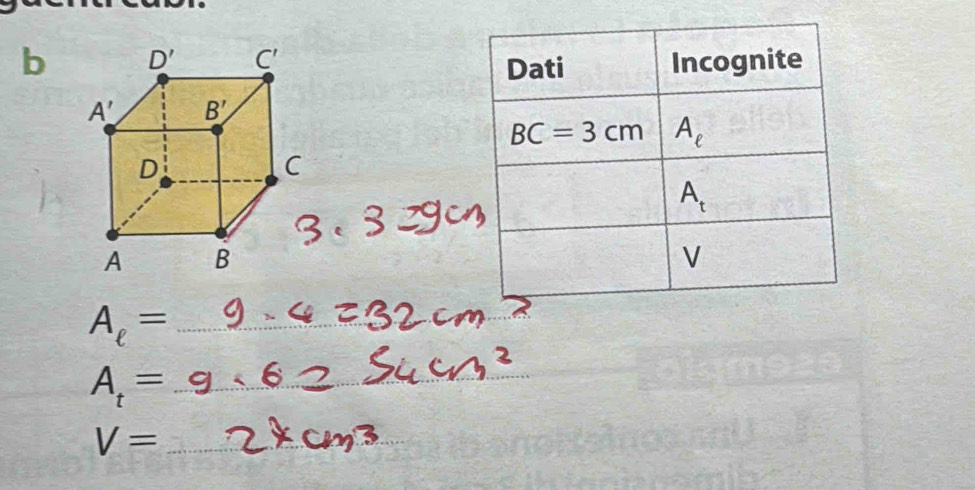 b
D' C'
A' B'
D C
A B
Dati Incognite
BC = 3 cm Aℓ
At
V
3 · 3 = 9 cm
Aℓ = 9 · 4 = 32 cm²
At = 9 · 6 = 54 cm²
V = 27 cm³